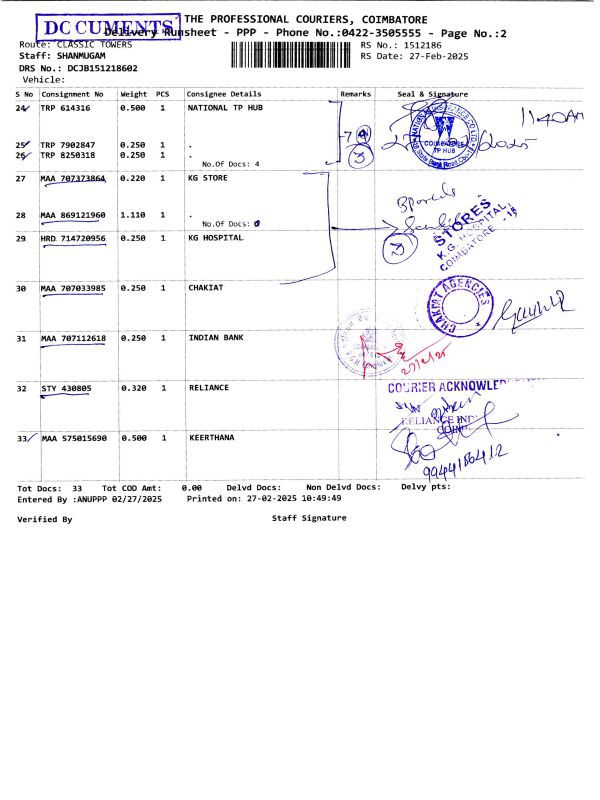 DOCUMENTS
THE PROFESSIONAL COURIERS, COIMBATORE
Delivery Runsheet - PPP - Phone No.:0422-3505555 - Page No.:2
Route: CLASSIC TOWERS
RS No.: 1512186
Staff: SHANMUGAM
RS Date: 27-Feb-2025
DRS No.: DCJB151218602
Vehicle:
S No Consignment No Weight PCS Consignee Details Remarks Seal & Signature
24 TRP 614316 0.500 1 NATIONAL TP HUB
1140AM
25 TRP 7902847 0.250 1 .
26 TRP 8250318 0.250 1 .
COIMBATORE
TP HUB
No.Of Docs: 4
3
27 MAA 707373864 0.220 1 KG STORE
28 MAA 869121960 1.110 1 .
No.Of Docs: 0
STORES
K.G. HOSPITAL,
COIMBATORE - 18
29 HRD 714720956 0.250 1 KG HOSPITAL
3
30 MAA 707033985 0.250 1 CHAKIAT
CHAKIAT AGENCIES
31 MAA 707112618 0.250 1 INDIAN BANK
27/2/25
32 STY 430805 0.320 1 RELIANCE
COURIER ACKNOWLED
RELIANCE IND
COIM
33 MAA 575015690 0.500 1 KEERTHANA
9944186412
Tot Docs: 33 Tot COD Amt: 0.00 Delvd Docs: Non Delvd Docs: Delvy pts:
Entered By :ANUPPP 02/27/2025 Printed on: 27-02-2025 10:49:49
Verified By Staff Signature